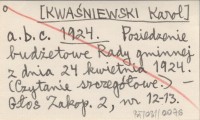 [KWAŚNIEWSKI Karol]
a.b.c. 1924. Posiedzenie
budżetowe Rady gminnej
z dnia 24 kwietnia 1924.
(Czytanie szczegółowe.) —
Głos Zakop. 2, nr 12-13.